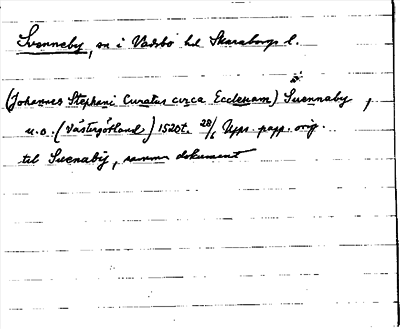 Svenneby, sn i Vadsbo hd Skaraborgs l.
(Johannes Stephani Curatus circa Ecclesiam) Suennaby,
u.o. (Västergötland) 1520t. 28/6 Upps. papp. orig.
til Suenaby, samma dokument